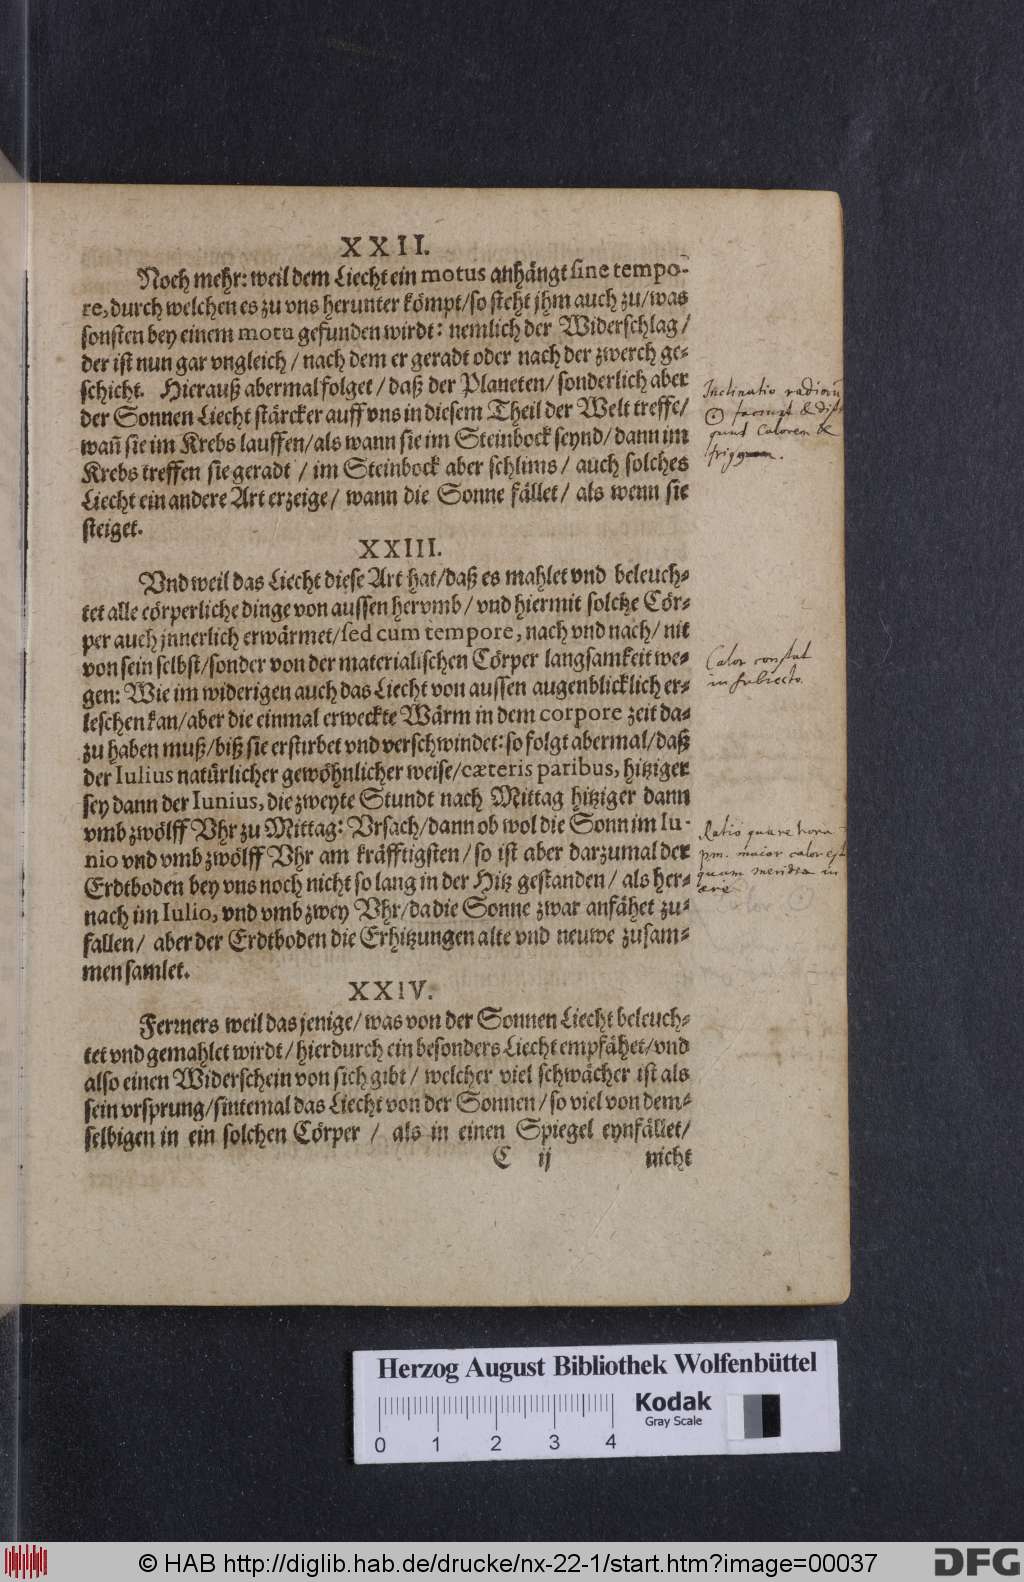 XXII.
Noch mehr: weil dem Liecht ein motus anhängt sine tempo-
re, durch welchen es zu vns herunter kömpt/ so steht jhm auch zu/ was
sonsten bey einem motu gefunden wirdt: nemlich der Widerschlag/
der ist nun gar vngleich/ nach dem er geradt oder nach der zwerch ge-
schicht. Hierauß abermal folget/ daß der Planeten/ sonderlich aber
der Sonnen Liecht stärcker auff vns in diesem Theil der Welt treffe/
wañ sie im Krebs lauffen/ als wann sie im Steinbock seynd/ dann im
Krebs treffen sie geradt/ im Steinbock aber schlims/ auch solches
Liecht ein andere Art erzeige/ wann die Sonne fället/ als wenn sie
steiget.
Inclinatio radiorum
☉ &
calorem &
XXIII.
Vnd weil das Liecht diese Art hat/ daß es mahlet vnd beleuch-
tet alle cörperliche dinge von aussen hervmb/ vnd hiermit solche Cör-
per auch jnnerlich erwärmet/ sed cum tempore, nach vnd nach/ nit
von sein selbst/ sonder von der materialischen Cörper langsamkeit we-
gen: Wie im widerigen auch das Liecht von aussen augenblicklich er-
leschen kan/ aber die einmal erweckte Wärm in dem corpore zeit da-
zu haben muß/ biß sie erstirbet vnd verschwindet: so folgt abermal/ daß
der Iulius natürlicher gewöhnlicher weise/ cæteris paribus, hitziger
sey dann der Iunius, die zweyte Stundt nach Mittag hitziger dann
vmb zwölff Vhr zu Mittag: Vrsach/ dann ob wol die Sonn im Iu-
nio vnd vmb zwölff Vhr am kräfftigsten/ so ist aber darzumal der
Erdtboden bey vns noch nicht so lang in der Hitz gestanden/ als her-
nach im Iulio, vnd vmb zwey Vhr/ da die Sonne zwar anfähet zu-
fallen/ aber der Erdtboden die Erhitzungen alte vnd neuwe zusam-
men samlet.
Calor constat
in subiecto.
Ratio quare hora
pm. maior calor est
quam meridia in
XXIV.
Ferners weil das jenige/ was von der Sonnen Liecht beleuch-
tet vnd gemahlet wirdt/ hierdurch ein besonders Liecht empfähet/ vnd
also einen Widerschein von sich gibt/ welcher viel schwächer ist als
sein vrsprung/ sintemal das Liecht von der Sonnen/ so viel von dem-
selbigen in ein solchen Cörper/ als in einen Spiegel eynfället/
C ij nicht
Herzog August Bibliothek Wolfenbüttel
Kodak
Gray Scale
0 1 2 3 4
© HAB http://diglib.hab.de/drucke/nx-22-1/start.htm?image=00037
DFG